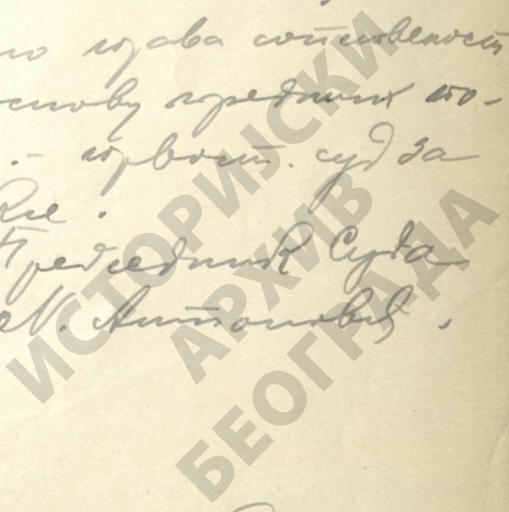 права сопствености
основу предњих по-
- првост. суд за
Председник Суда
М. Антоновић.
ИСТОРИЈСКИ
АРХИВ
БЕОГРАДА